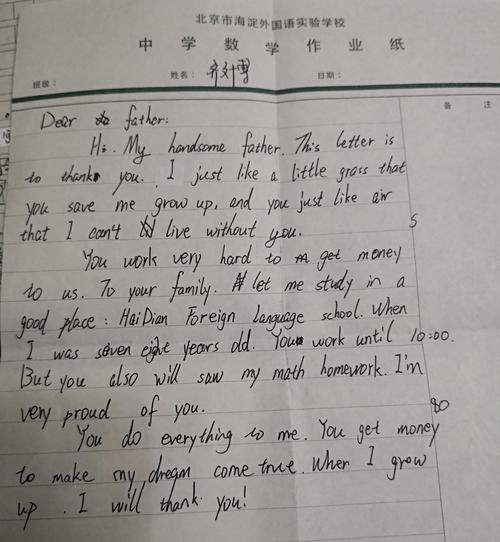 北京市海淀外国语实验学校
中学数学作业纸
班级： 姓名： 日期：
备 注
Dear father:
Hi. My handsome father. This letter is
to thank you. I just like a little grass that
you save me grow up, and you just like air
that I can't live without you.
5
You work very hard to get money
to us. To your family. let me study in a
good place: HaiDian Foreign Language school. When
I was seven eight years old. You work until 10:00.
But you also will saw my math homework. I'm
very proud of you.
80
You do everything to me. You get money
to make my dream come true. When I grow
up. I will thank you!